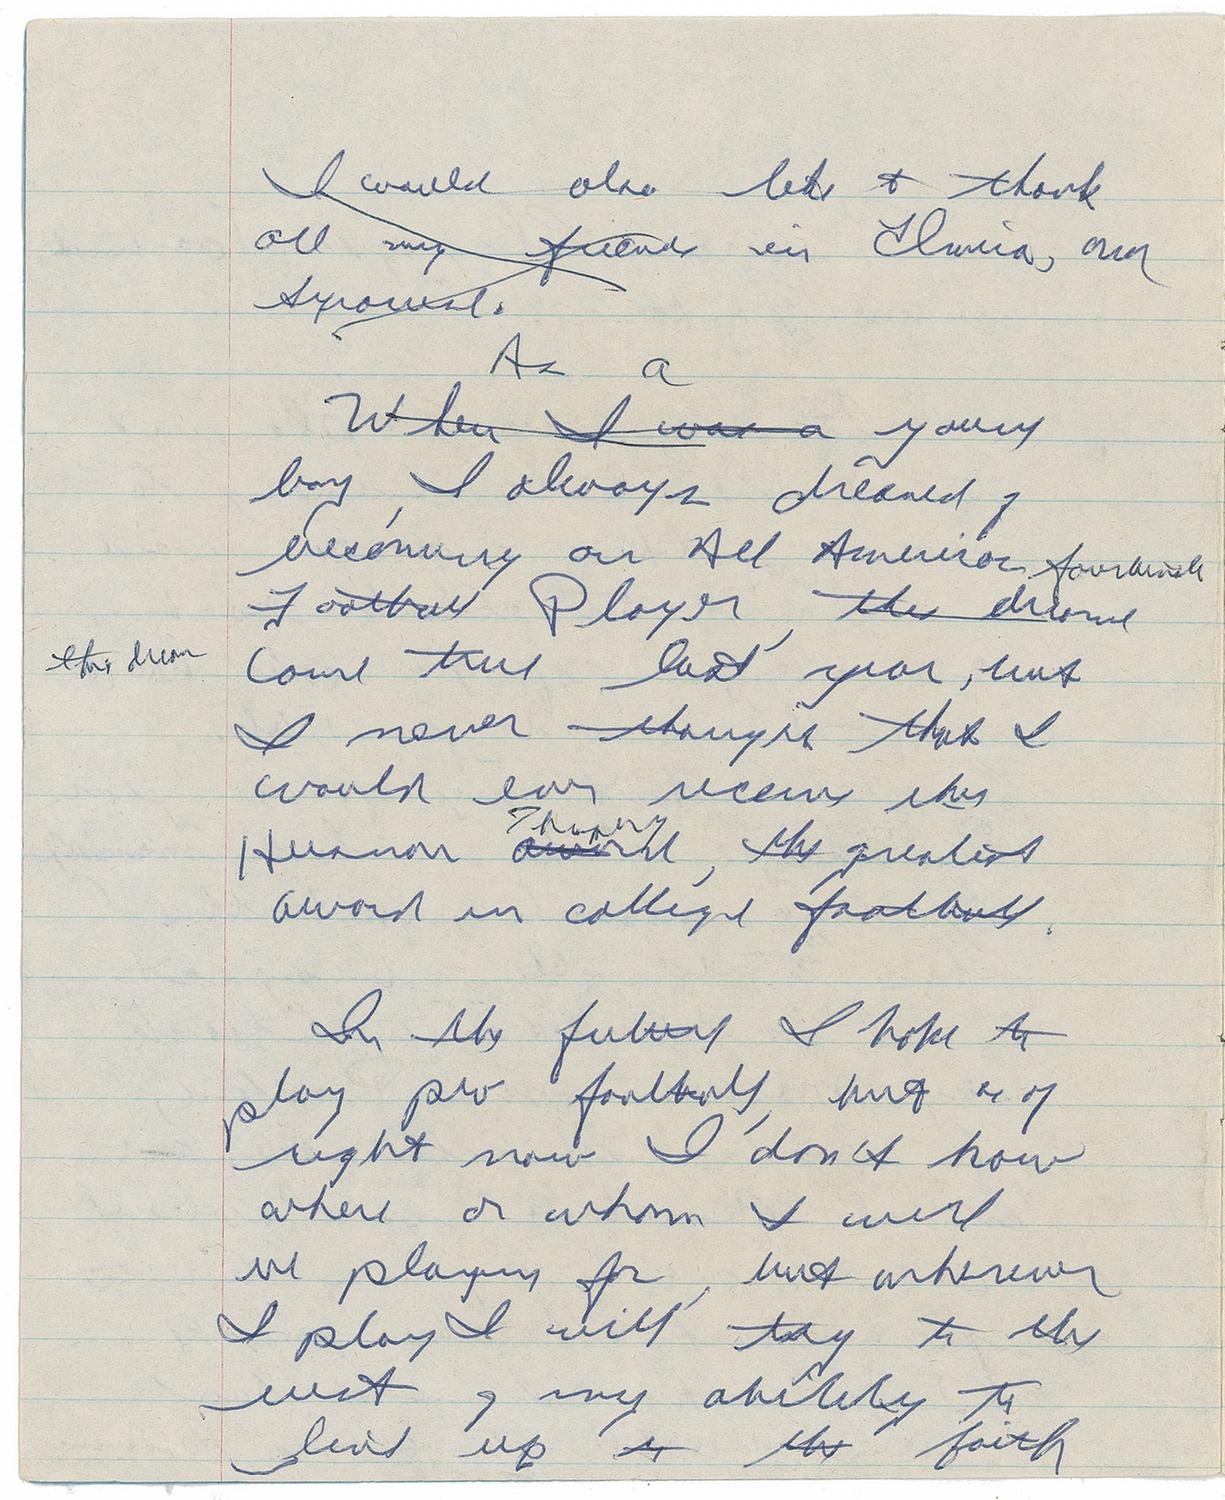 I would also like to thank
all my friends in Elmira, and
Syracuse.
As a
When I was a young
boy, I always dreamed of
becoming an All American
Football Player, the dream
this dream
come true last year, but
I never thought that I
would ever receive this
Trophy
Heisman award, the greatest
award in college football.
In the future I hope to
play pro football, but as of
right now I don't know
where or whom I will
be playing for, but wherever
I play I will try to the
best of my ability to
live up to the faith